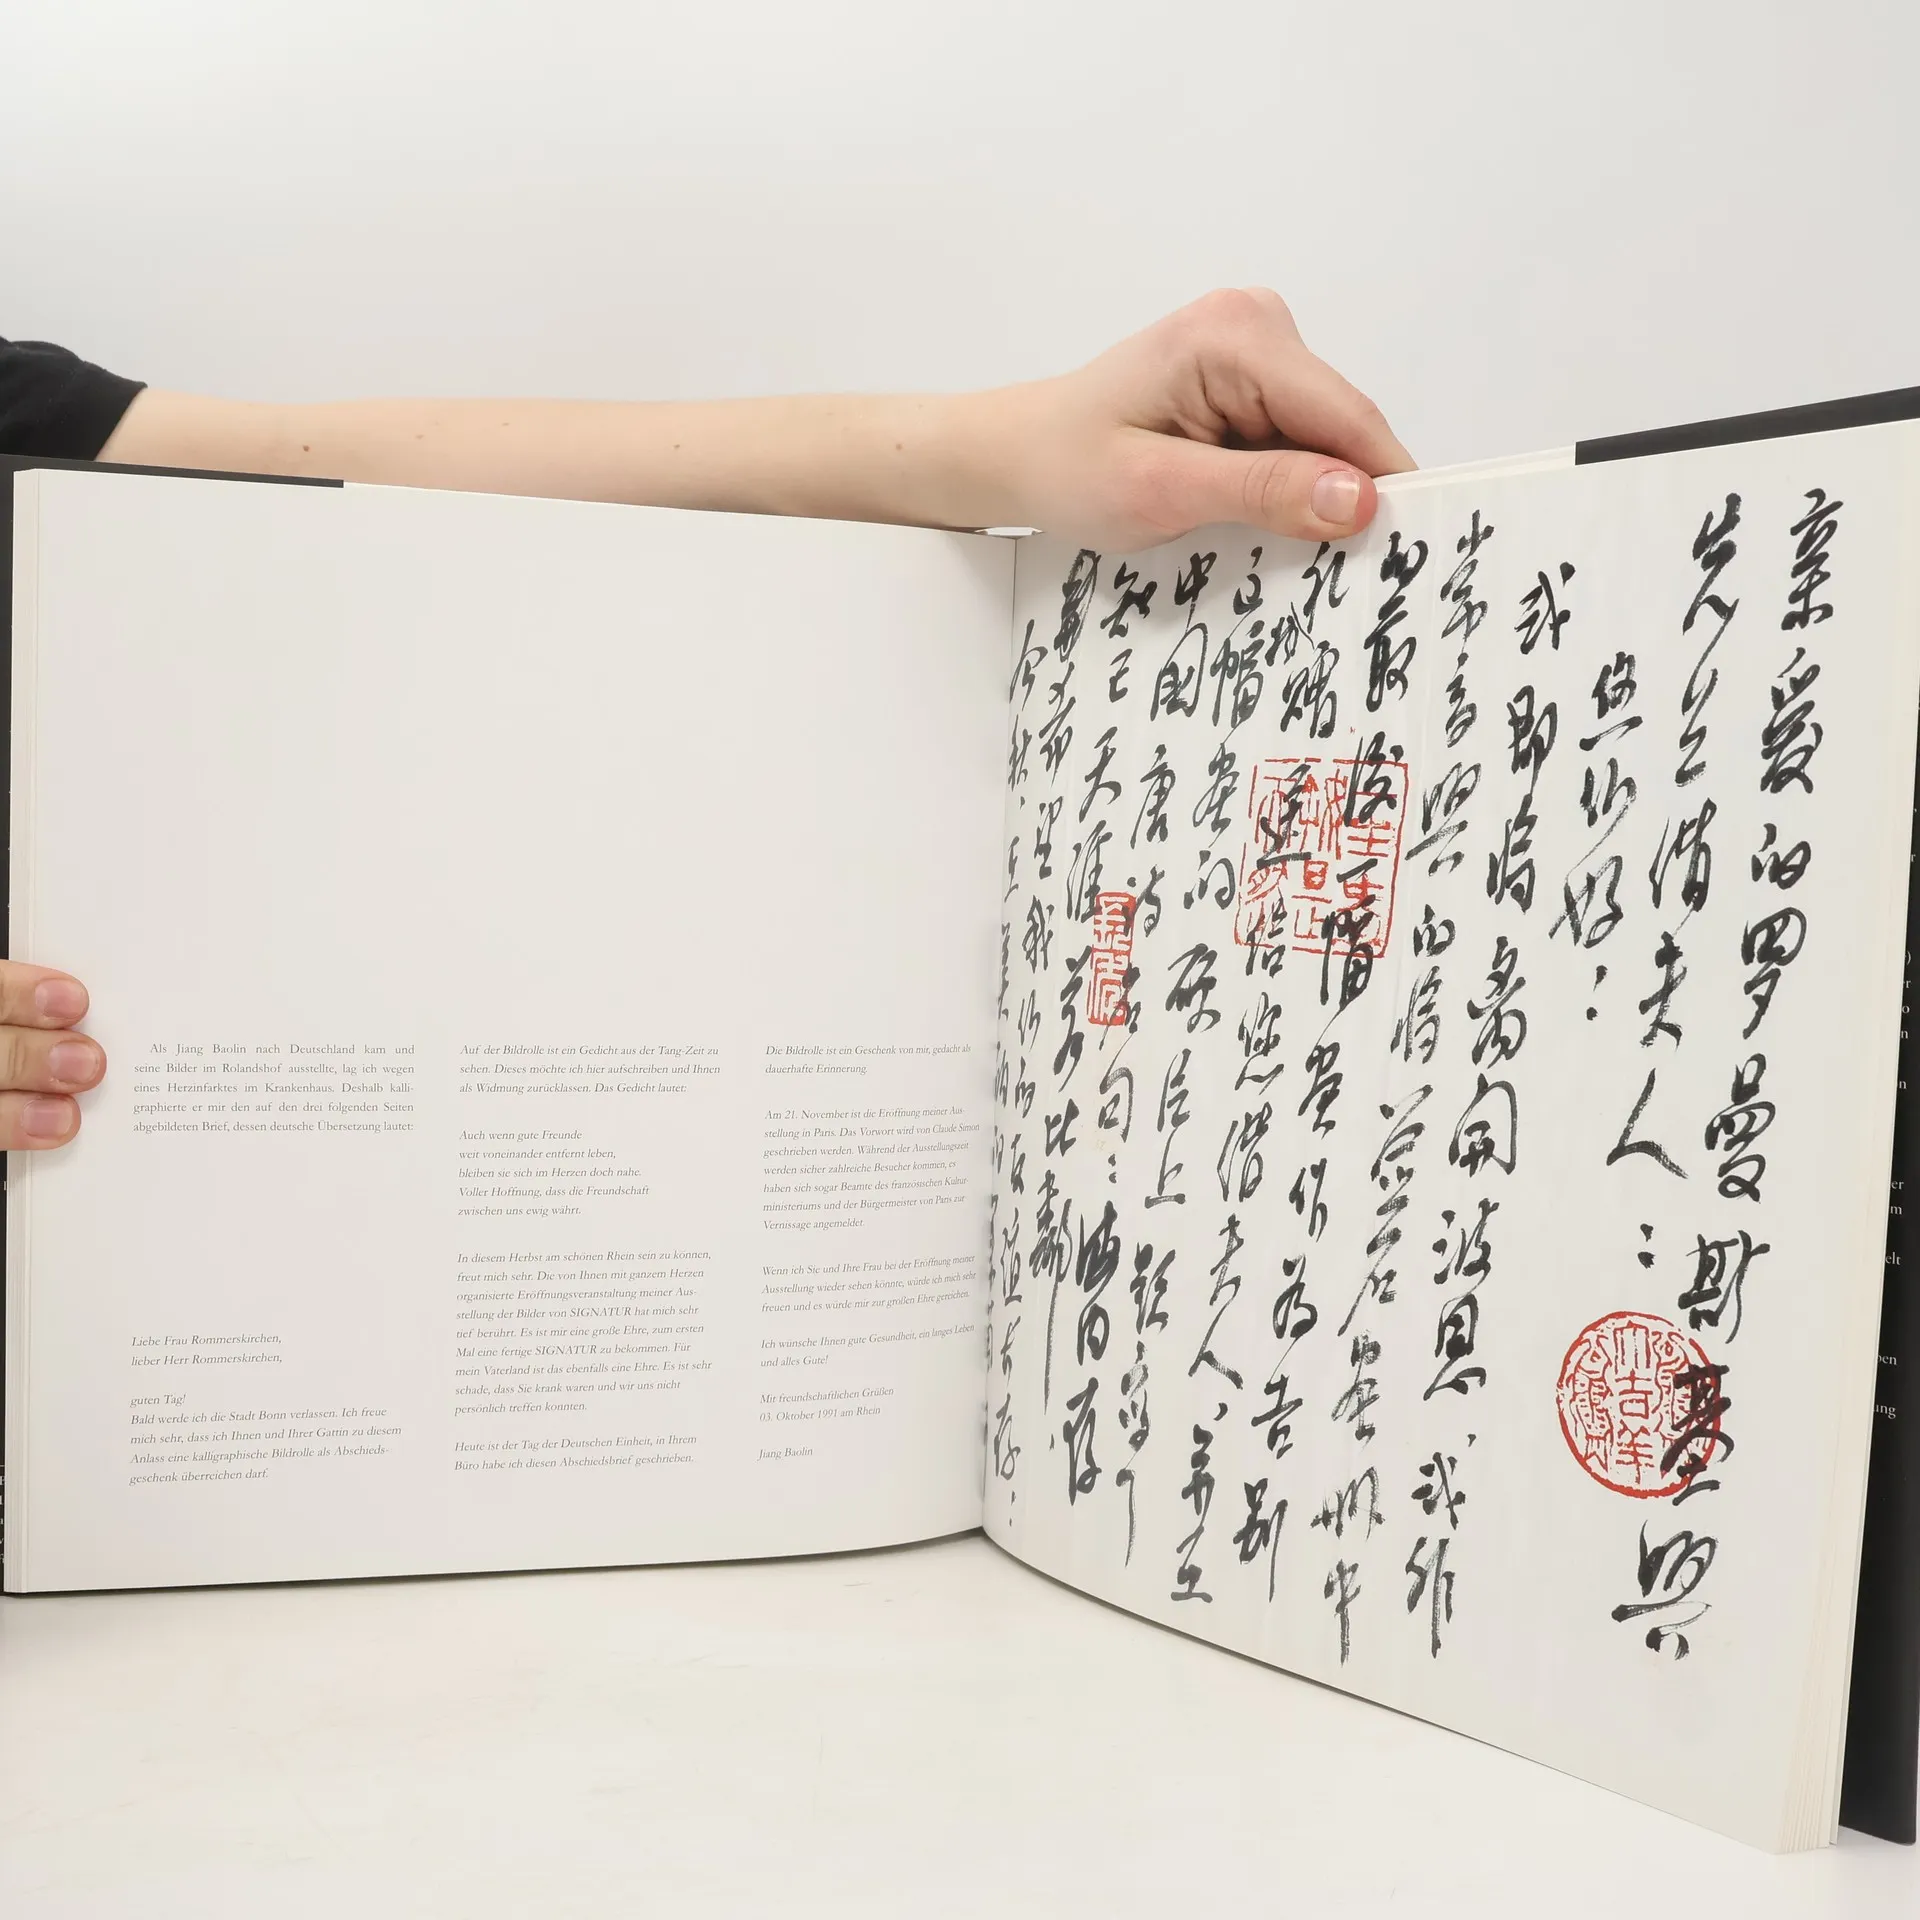 Als Jiang Baolin nach Deutschland kam und
seine Bilder im Rolandshof ausstellte, lag ich wegen
eines Herzinfarktes im Krankenhaus. Deshalb kalli-
graphierte er mir den auf den drei folgenden Seiten
abgebildeten Brief, dessen deutsche Übersetzung lautet:
Liebe Frau Rommerskirchen,
lieber Herr Rommerskirchen,
guten Tag!
Bald werde ich die Stadt Bonn verlassen. Ich freue
mich sehr, dass ich Ihnen und Ihrer Gattin zu diesem
Anlass eine kalligraphische Bildrolle als Abschieds-
geschenk überreichen darf.
Auf der Bildrolle ist ein Gedicht aus der Tang-Zeit zu
sehen. Dieses möchte ich hier aufschreiben und Ihnen
als Widmung zurücklassen. Das Gedicht lautet:
Auch wenn gute Freunde
weit voneinander entfernt leben,
bleiben sie sich im Herzen doch nahe.
Voller Hoffnung, dass die Freundschaft
zwischen uns ewig währt.
In diesem Herbst am schönen Rhein sein zu können,
freut mich sehr. Die von Ihnen mit ganzem Herzen
organisierte Eröffnungsveranstaltung meiner Aus-
stellung der Bilder von SIGNATUR hat mich sehr
tief berührt. Es ist mir eine große Ehre, zum ersten
Mal eine fertige SIGNATUR zu bekommen. Für
mein Vaterland ist das ebenfalls eine Ehre. Es ist sehr
schade, dass Sie krank waren und wir uns nicht
persönlich treffen konnten.
Heute ist der Tag der Deutschen Einheit, in Ihrem
Büro habe ich diesen Abschiedsbrief geschrieben.
Die Bildrolle ist ein Geschenk von mir, gedacht als
dauerhafte Erinnerung.
Am 21. November ist die Eröffnung meiner Aus-
stellung in Paris. Das Vorwort wird von Claude Simon
geschrieben werden. Während der Ausstellungszeit
werden sicher zahlreiche Besucher kommen, es
haben sich sogar Beamte des französischen Kultur-
ministeriums und der Bürgermeister von Paris zur
Vernissage angemeldet.
Wenn ich Sie und Ihre Frau bei der Eröffnung meiner
Ausstellung wieder sehen könnte, würde ich mich sehr
freuen und es würde mir zur großen Ehre gereichen.
Ich wünsche Ihnen gute Gesundheit, ein langes Leben
und alles Gute!
Mit freundschaftlichen Grüßen
03. Oktober 1991 am Rhein
Jiang Baolin
亲爱的罗曼斯基與
先生偕夫人：
您们好：
我即将离开波恩 我非
常高興的将签名画册中
的最後一幅画作为告别
礼物赠送给您偕夫人，并在
这幅画的硬片上题写了
中国唐诗名句：海内存
知己 天涯若比鄰
希望我们的友谊长存：
今秋，在美